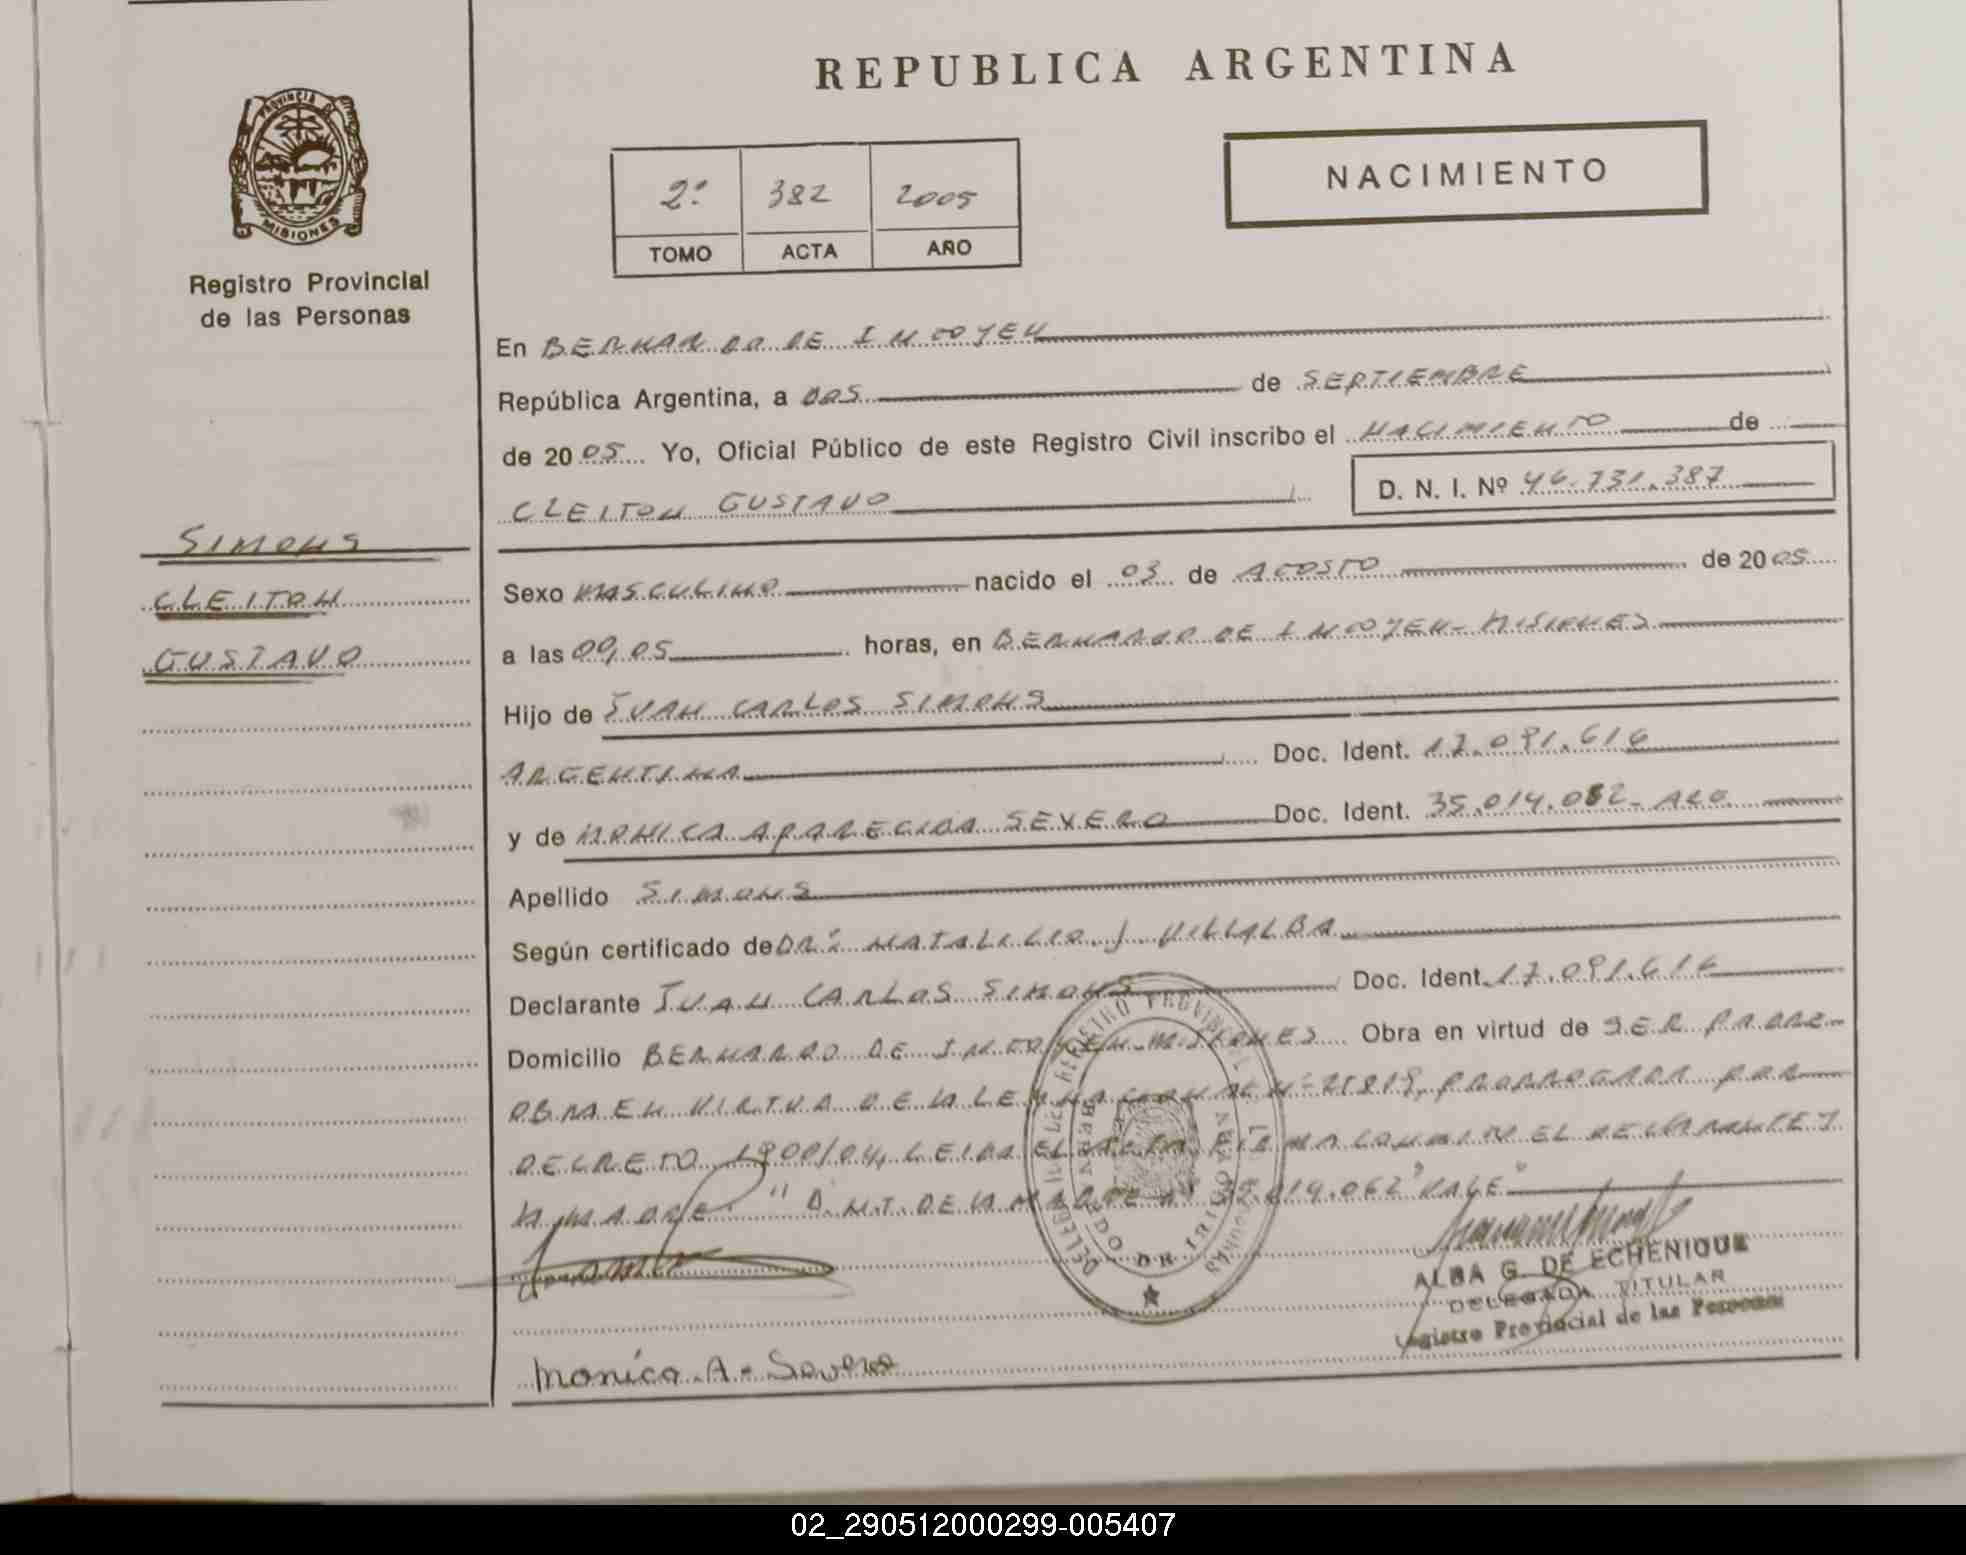 REPUBLICA ARGENTINA
PROVINCIA DE
MISIONES
Registro Provincial
de las Personas
2º 382 2005
TOMO ACTA AÑO
NACIMIENTO
En BERNARDO DE IRIGOYEN
República Argentina, a DOS de SEPTIEMBRE
de 2005 Yo, Oficial Público de este Registro Civil inscribo el NACIMIENTO de
CLEITON GUSTAVO
D. N. I. Nº 46.731.387
SIMONS
CLEITON
GUSTAVO
Sexo MASCULINO nacido el 03 de AGOSTO de 2005
a las 09,05 horas, en BERNARDO DE IRIGOYEN-MISIONES
Hijo de JUAN CARLOS SIMONS
ARGENTINA Doc. Ident. 17.091.616
y de MONICA APARECIDA SEVERO Doc. Ident. 35.014.062- ARG.
Apellido SIMONS
Según certificado de DR: NATALICIO J. VILLALBA
Declarante JUAN CARLOS SIMONS Doc. Ident. 17.091.616
Domicilio BERNARDO DE IRIGOYEN-MISIONES Obra en virtud de SER PADRE-
OBRA EN VIRTUD DE LA LEY NACIONAL Nº 25819, PRORROGADA POR
DECRETO 1900/04, LEIDA EL ACTA, FIRMA CONMIGO EL DECLARANTE Y
LA MADRE. "D.N.I. DE LA MADRE Nº 35.014.062" VALE"
ALBA G. DE ECHENIQUE
DELEGADA TITULAR
Registro Provincial de las Personas
Monica A. Severo
02_290512000299-005407